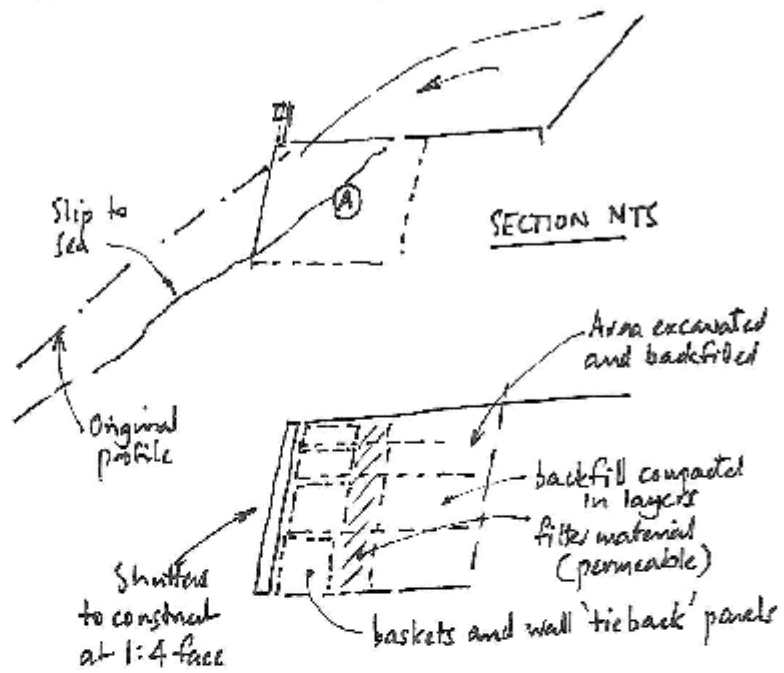 A
Slip to
sea
SECTION NTS
Original
profile
Area excavated
and backfilled
backfill compacted
in layers
filter material
(permeable)
Shutters
to construct
at 1:4 face
baskets and wall 'tieback' panels